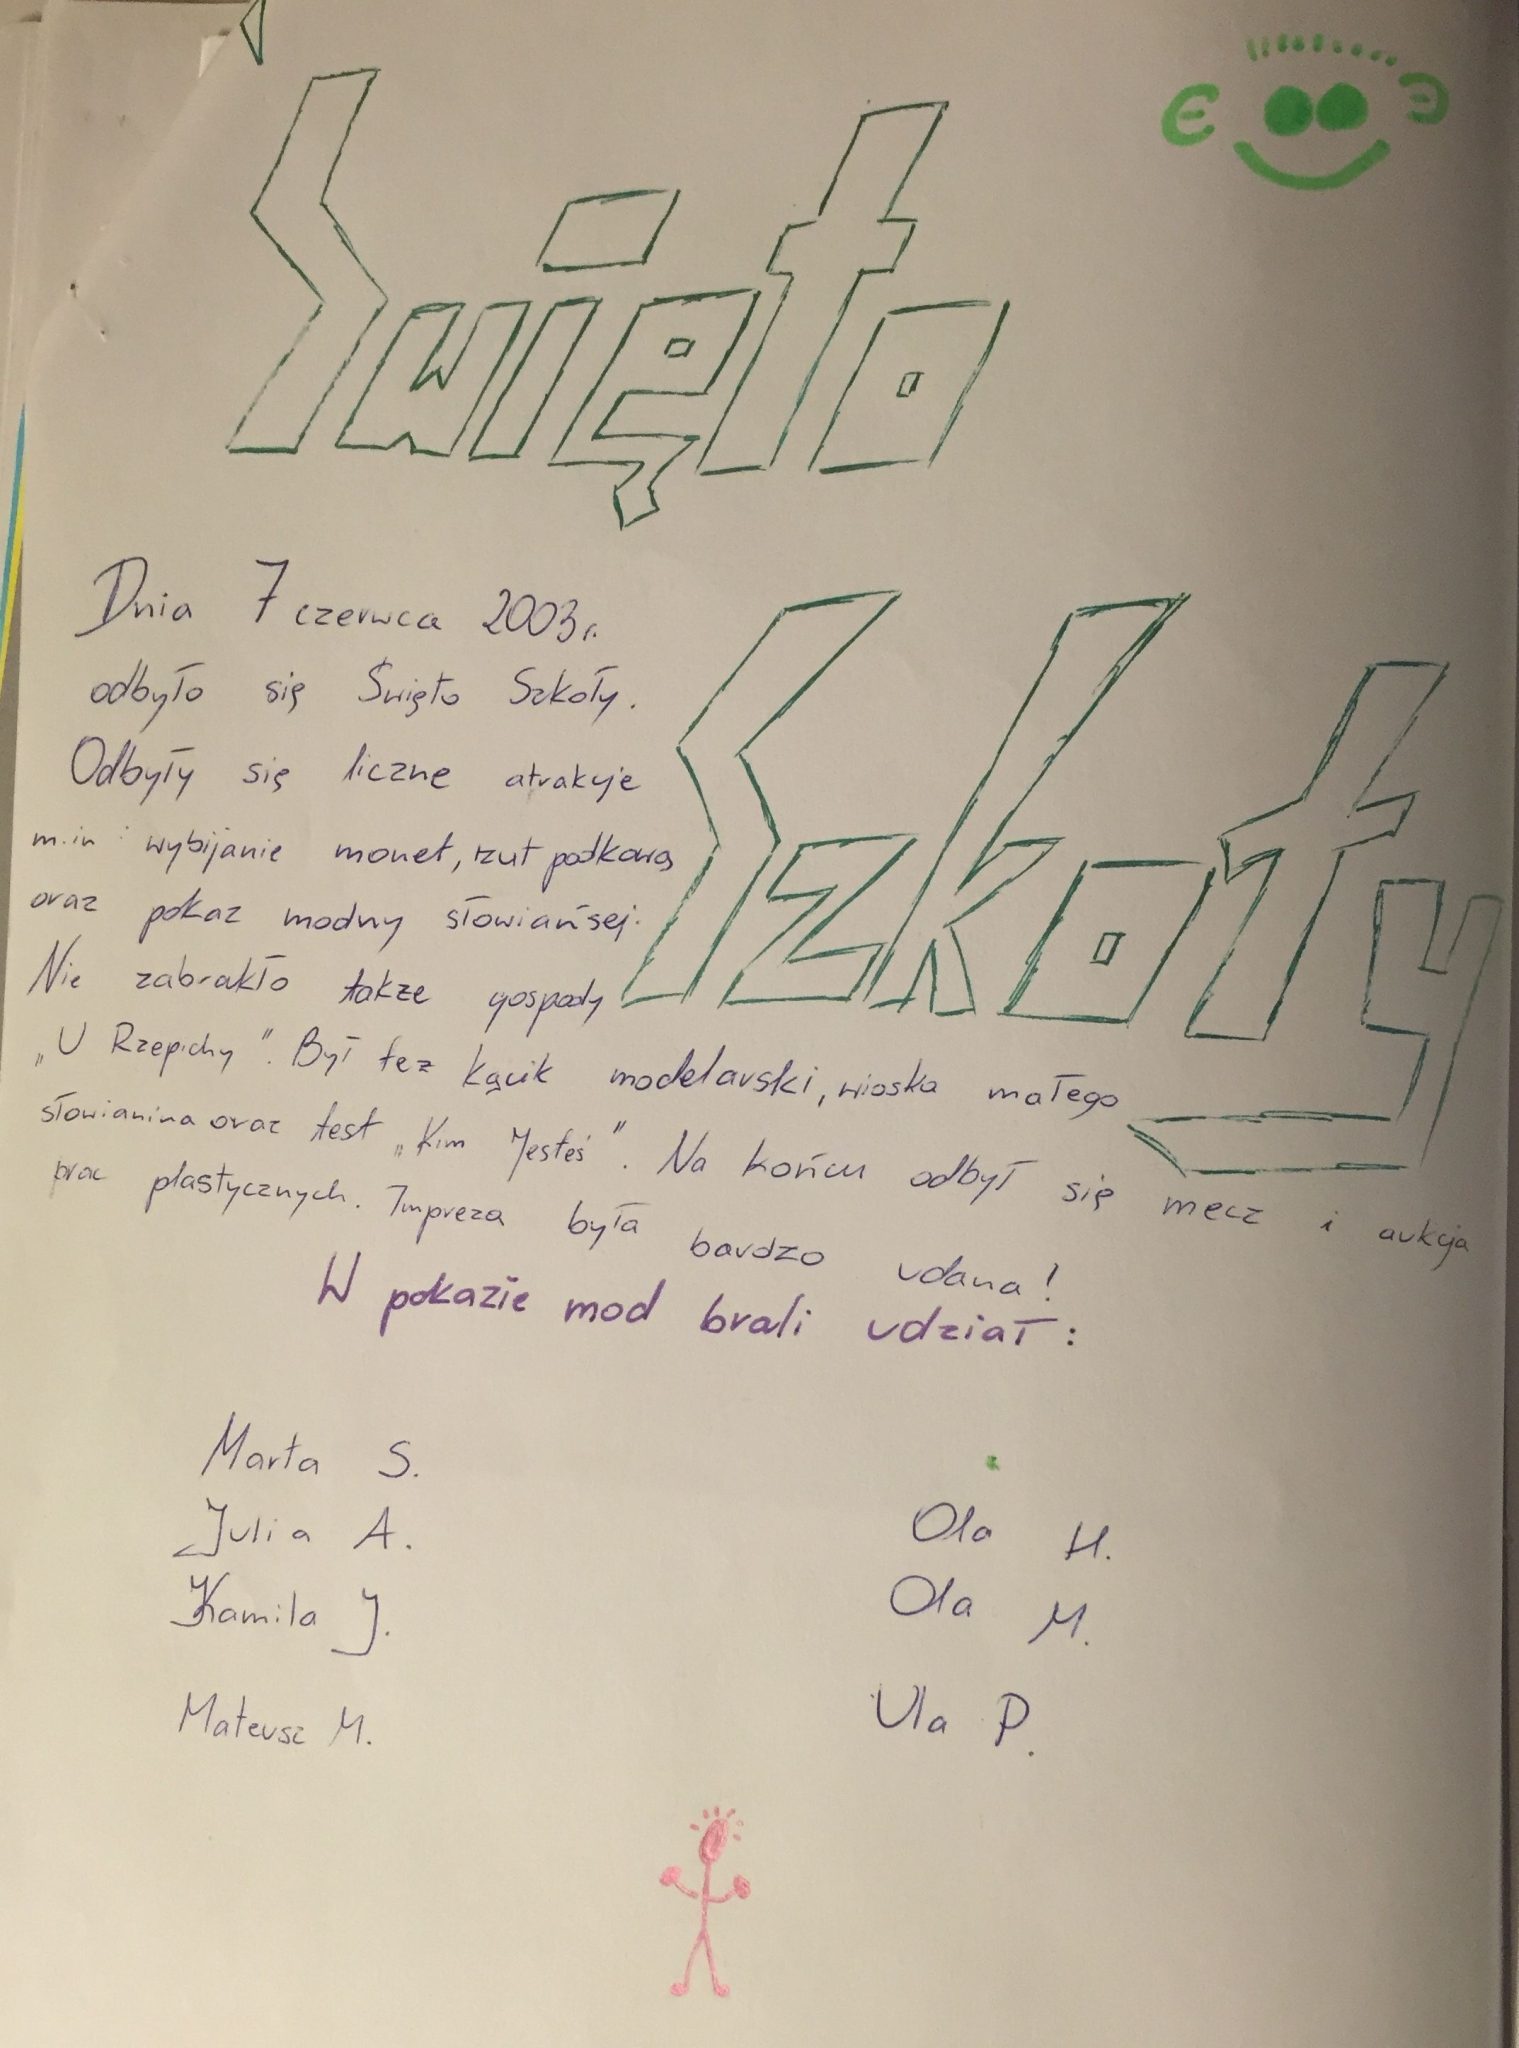 Święto
Szkoły
Dnia 7 czerwca 2003r.
odbyło się Święto Szkoły.
Odbyły się liczne atrakcje
m.in : wybijanie monet, rzut podkową
oraz pokaz modny słowiańsej.
Nie zabrakło także gospody
„U Rzepichy”. Był też kącik modelarski, wioska małego
słowianina oraz test „Kim Jesteś”. Na końcu odbył się mecz i aukcja
prac plastycznych. Impreza była bardzo udana!
W pokazie mod brali udział:
Marta S.
Julia A.
Kamila J.
Mateusz M.
Ola H.
Ola M.
Ula P.